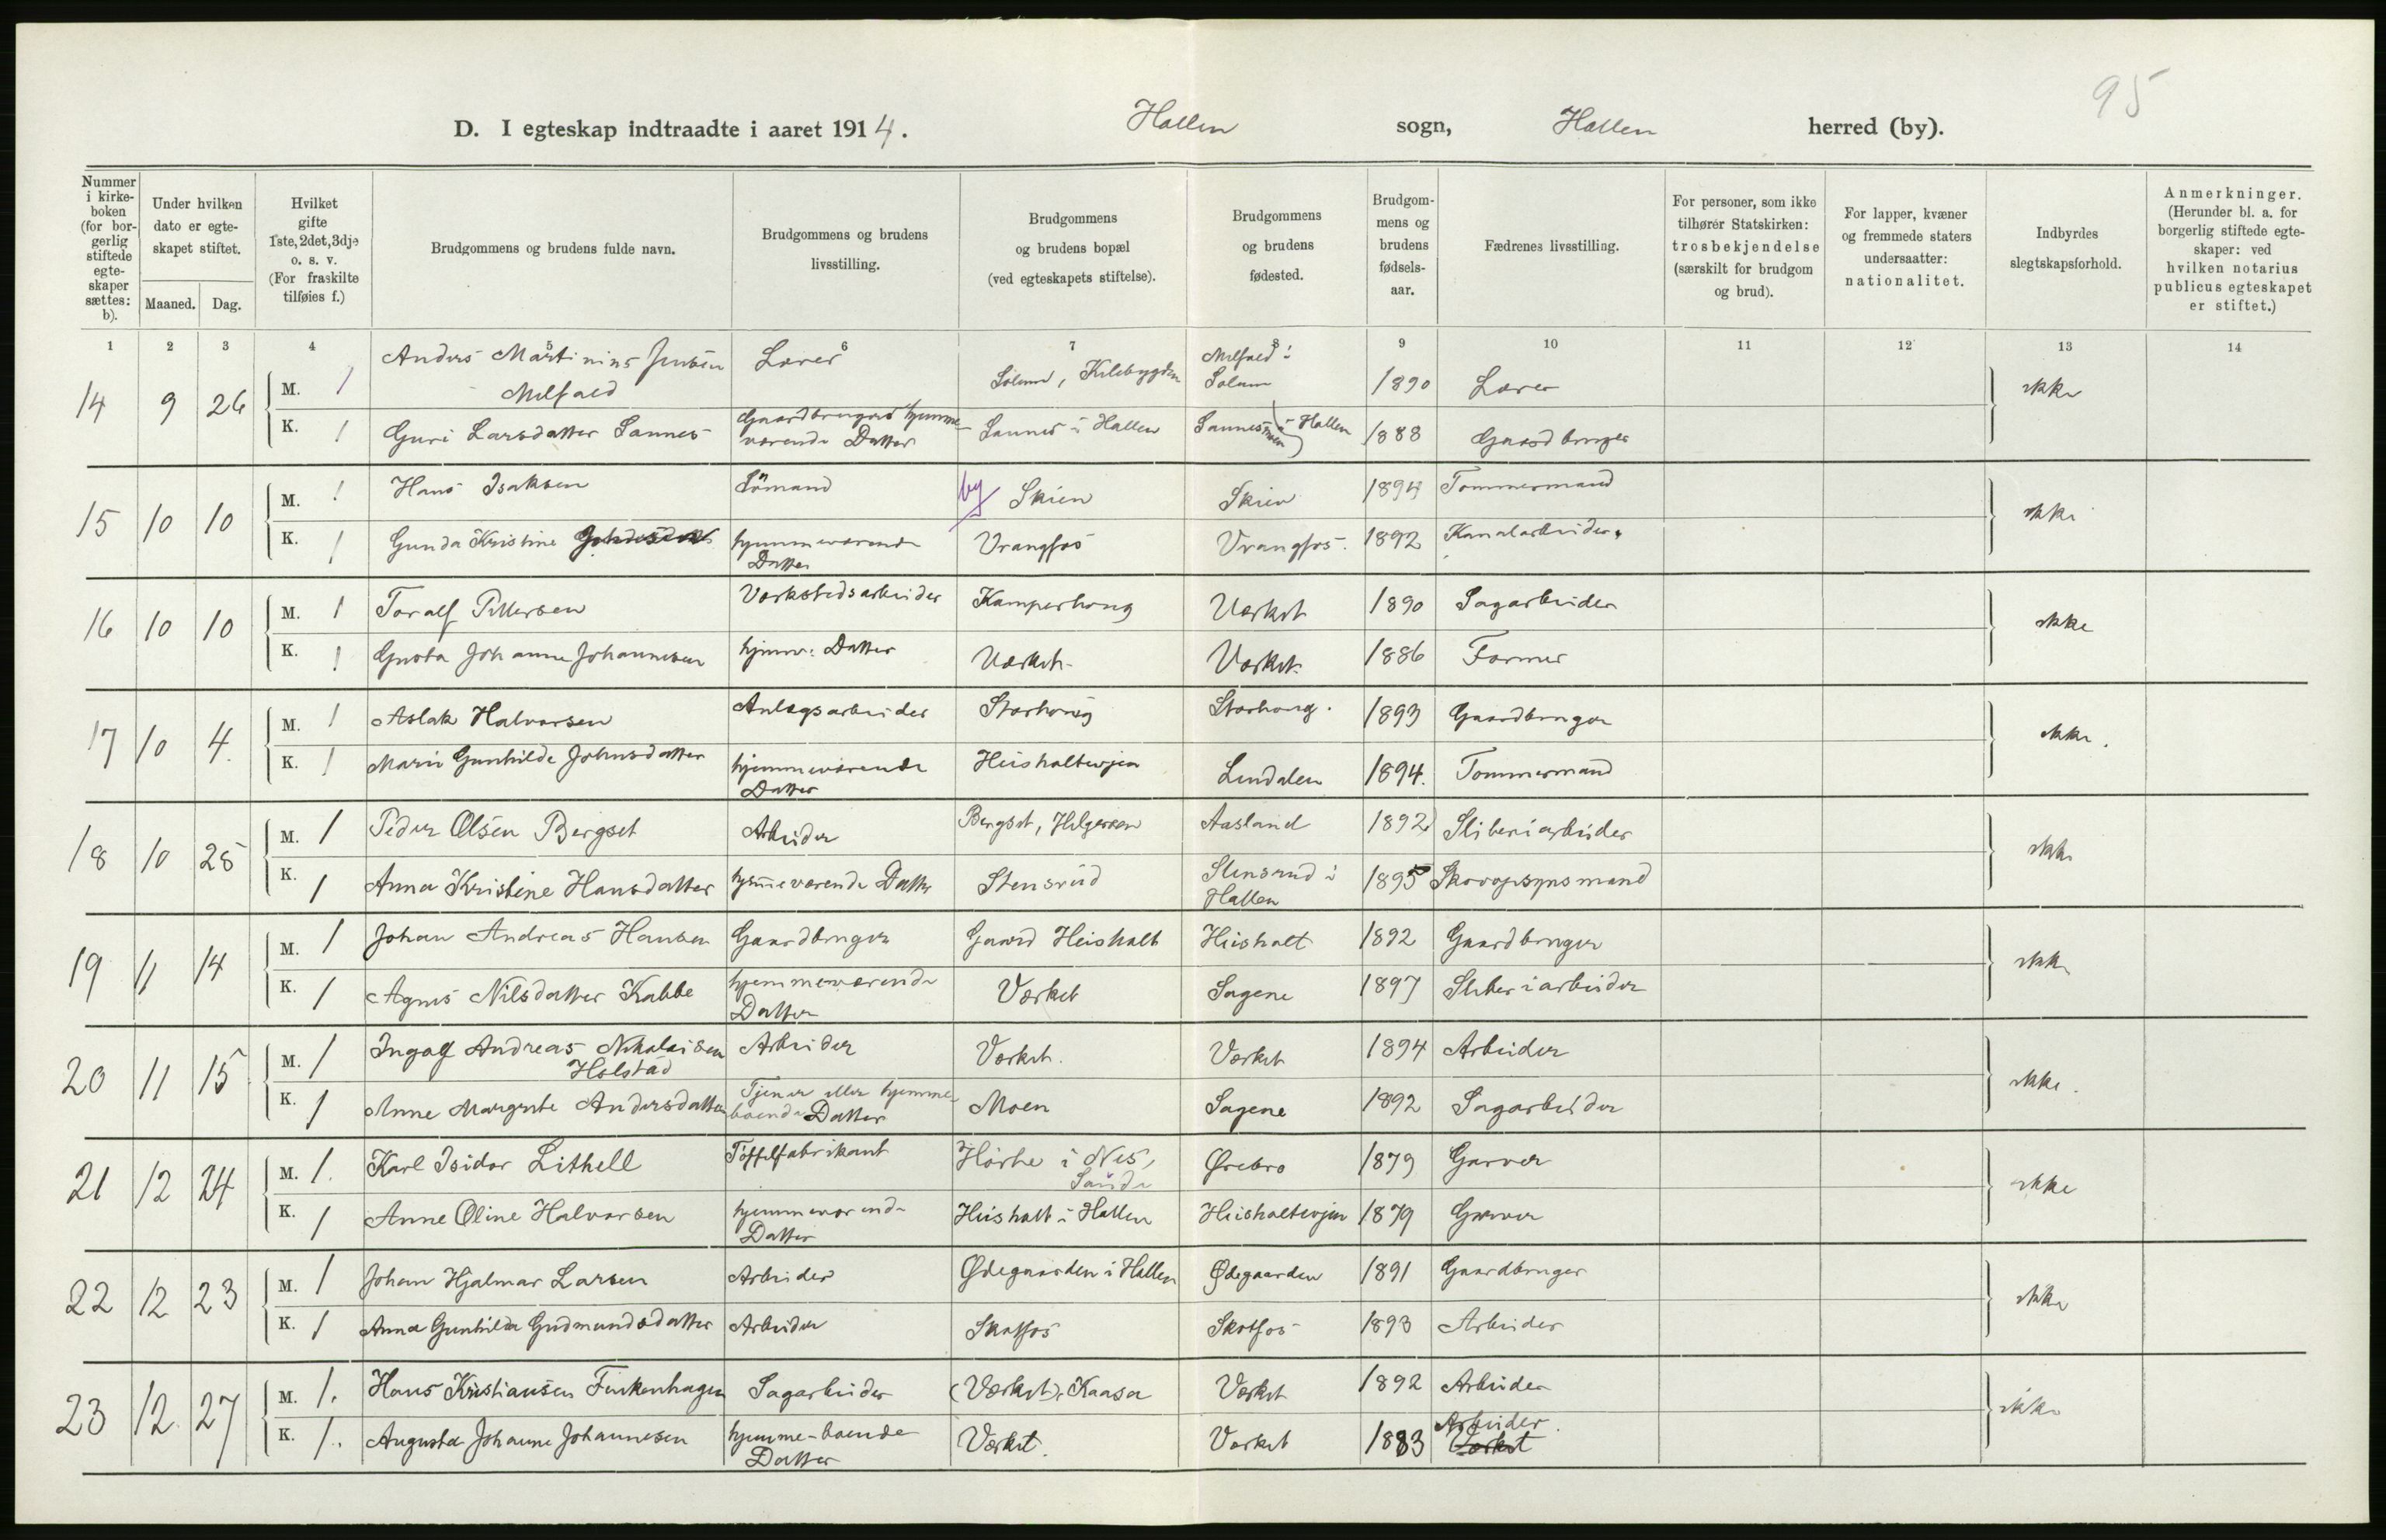 95
D. I egteskap indtraadte i aaret 1914. Hollen sogn, Hollen herred (by).
Nummer i kirkeboken (for borgerlig stiftede egteskaper sættes: b).
Under hvilken dato er egteskapet stiftet.
Maaned. Dag.
Hvilket gifte 1ste, 2det, 3dje o. s. v. (For fraskilte tilføies f.)
Brudgommens og brudens fulde navn.
Brudgommens og brudens livsstilling.
Brudgommens og brudens bopæl (ved egteskapets stiftelse).
Brudgommens og brudens fødested.
Brudgommens og brudens fødselsaar.
Fædrenes livsstilling.
For personer, som ikke tilhører Statskirken: trosbekjendelse (særskilt for brudgom og brud).
For lapper, kvæner og fremmede staters undersaatter: nationalitet.
Indbyrdes slegtskapsforhold.
Anmerkninger. (Herunder bl. a. for borgerlig stiftede egteskaper: ved hvilken notarius publicus egteskapet er stiftet.)
1 2 3 4 5 6 7 8 9 10 11 12 13 14
14 9 26 M. 1 Anders Martinius Jensen Melfald Lærer Solum, Kilebygden Melfald i Solum 1890 Lærer ikke
K. 1 Guri Larsdatter Sannes Gaardbrugers hjemmeværende Datter Sannes i Hollen Sannesmoen i Hollen 1888 Gaardbruger
15 10 10 M. 1 Hans Isaksen Sömand by Skien Skien 1894 Tømmermand ikke
K. 1 Gunda Kristine hjemmeværende Datter Vrangfos Vrangfos. 1892 Kanalarbeider.
16 10 10 M. 1 Toralf Pettersen Værkstedsarbeider Kamperhoug Værket 1890 Sagarbeider ikke
K. 1 Gusta Johanne Johannesen hjemv. Datter Værket Værket 1886 Former
17 10 4. M. 1 Aslak Halvorsen Anlægsarbeider Storhoug Storhoug. 1893 Gaardbruger ikke.
K. 1 Marie Gunhilde Johnsdatter hjemmeværende Datter Heisholtveien Lindalen 1894. Tømmermand
18 10 25 M. 1 Peder Olsen Bergset Arbeider Bergset, Helgeroen Aasland 1892 Sliberiarbeider ikke
K. 1 Anna Kristine Hansdatter hjem̄eværende Datter Stensrud Stensrud i Hollen 1895 Skovopsynsmand
19 11 14 M. 1 Johan Andreas Hansen Gaardbruger Gaard Heisholt Heisholt 1892 Gaardbruger ikke
K. 1 Agnes Nilsdatter Kabbe hjemmeværende Datter Værket Sagene 1897 Sliberiarbeider
20 11 15 M. 1 Ingolf Andreas Nikolaisen Holstad Arbeider Værket. Værket 1894 Arbeider ikke.
K. 1 Anne Margrete Andersdatter Tjener eller hjemmeboende Datter Moen Sagene 1892 Sagarbeider
21 12 24 M. 1. Karl Isidor Lithell Töffelfabrikant Hørte i Nes, Saude Ørebro 1879 Garver ikke
K. 1 Anne Oline Halvorsen hjemmeværende Datter Heisholt i Hollen Heisholtveien 1879 Graver
22 12 23 M. 1 Johan Hjalmar Larsen Arbeider Ødegaarden i Hollen Ødegaarden 1891 Gaardbruger ikke
K. 1 Anna Gunhilda Gudmundsdatter Arbeider Skotfos Skotfos 1893 Arbeider
23 12. 27 M. 1. Hans Kristiansen Finkenhagen Sagarbeider (Værket), Kaasa Værket 1892 Arbeider ikke
K. 1. Augusta Johanne Johannesen hjemme-boende Datter Værket. Værket 1883 Arbeider. Værket